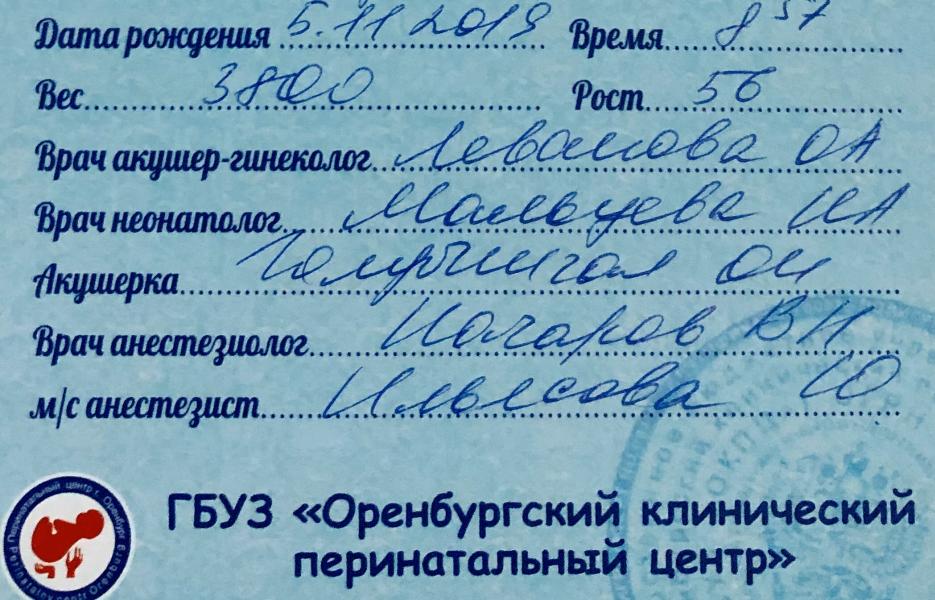 Дата рождения 5.11 2019 Время 8 57
Вес 3800 Рост 56
Врач акушер-гинеколог Левашова ОА
Врач неонатолог Мальцева ИА
Акушерка ОИ
Врач анестезиолог ВН
м/с анестезист Ильясова Ю
ГБУЗ «Оренбургский клинический
перинатальный центр»
Перинатальный центр г. Оренбург
Perinatalny centr Orenburg